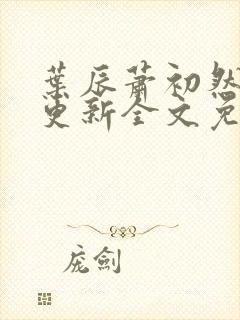 葉辰蕭初然
更新全文免
庞劍